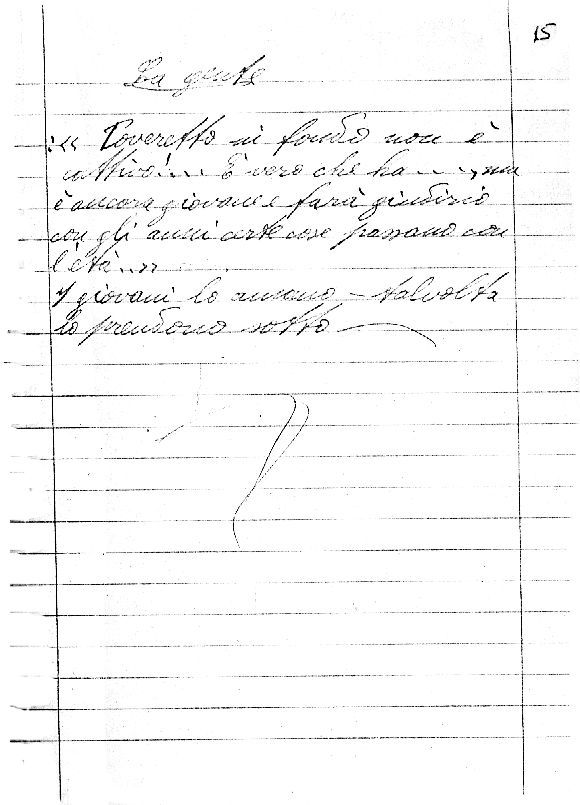 15
La gente
:« Poveretto in fondo non è
cattivo!... È vero che ha....., ma
è ancora giovane e farà giudizio
con gli anni certe cose passano con
l'età..»
I giovani lo amano – talvolta
lo prendono sotto –